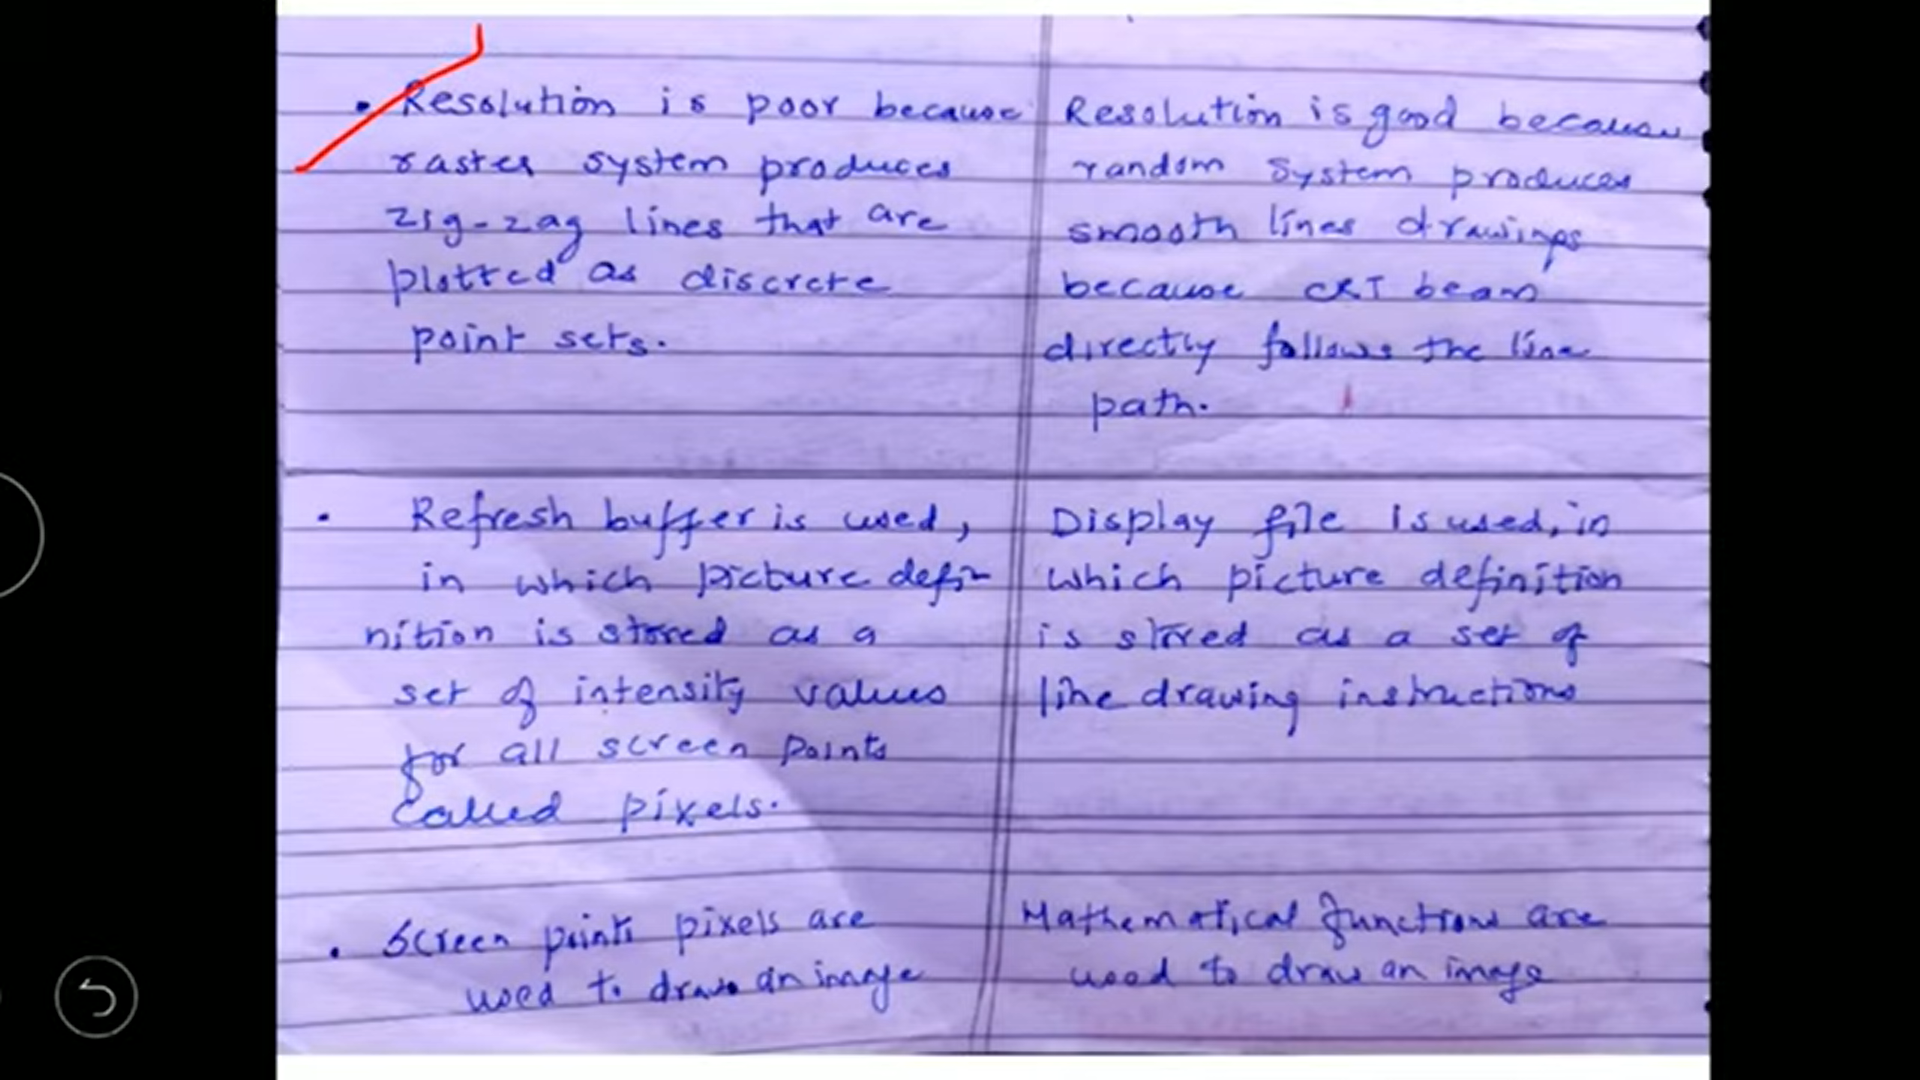 • Resolution is poor because
raster system produces
zig-zag lines that are
plotted as discrete
point sets.
Resolution is good because
random system produces
smooth lines drawings
because CRT beam
directly follows the line
path.
• Refresh buffer is used,
in which picture defi-
nition is stored as a
set of intensity values
for all screen points
called pixels.
Display file is used, in
which picture definition
is stored as a set of
line drawing instructions
• Screen points pixels are
used to draw an image
Mathematical functions are
used to draw an image